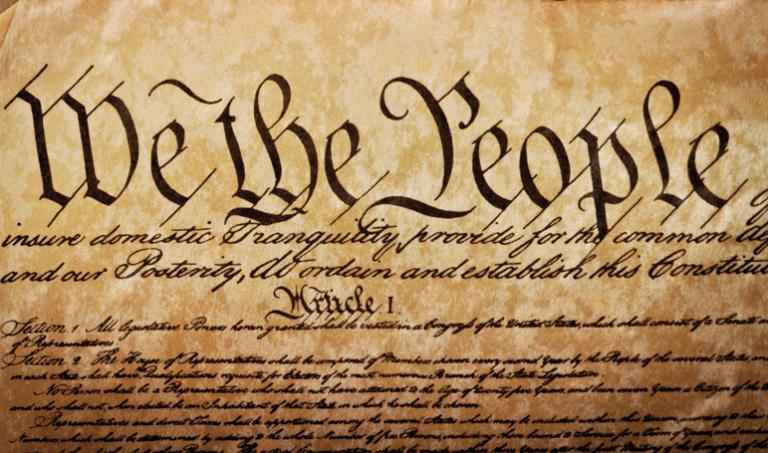 We the People
insure domestic Tranquility, provide for the common
and our Posterity, do ordain and establish this
Article I.
Section 1. All legislative Powers herein granted shall be vested in a Congress of the United States, which shall consist of a Senate
of Representatives
Section 2. The House of Representatives shall be composed of Members chosen every second Year by the People of the several States,
in each State shall have Qualifications requisite for Electors of the most numerous Branch of the State Legislature
No Person shall be a Representative who shall not have attained to the Age of twenty five Years, and been seven Years a Citizen of the
and who shall not, when elected, be an Inhabitant of that State in which he shall be chosen
Representatives and direct Taxes shall be apportioned among the several States which may be included within this Union, according to their
Numbers, which shall be determined by adding to the whole Number of free Persons, including those bound to Service for a Term of Years, and